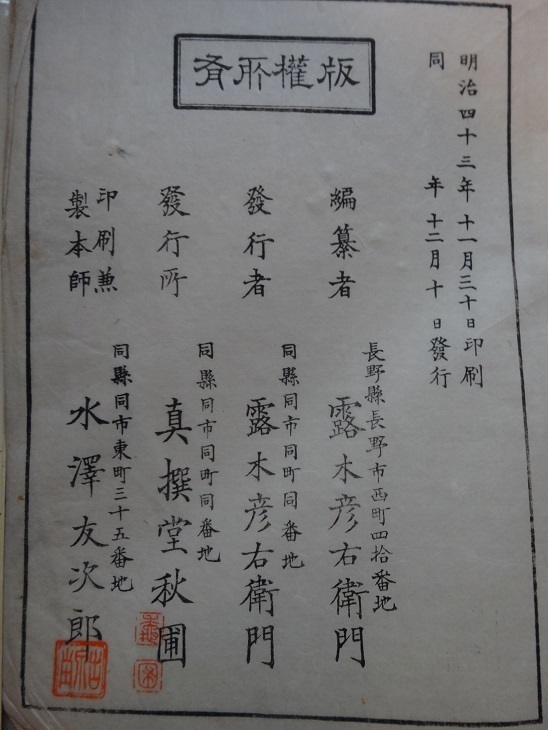 明治四十三年十一月三十日印刷
同年十二月十日發行
版權所有
編纂者
長野縣長野市西町四拾番地
露木彦右衛門
發行者
同縣同市同町同番地
露木彦右衛門
發行所
同縣同市同町同番地
真撰堂秋圃
印刷兼
製本師
同縣同市東町三十五番地
水澤友次郎